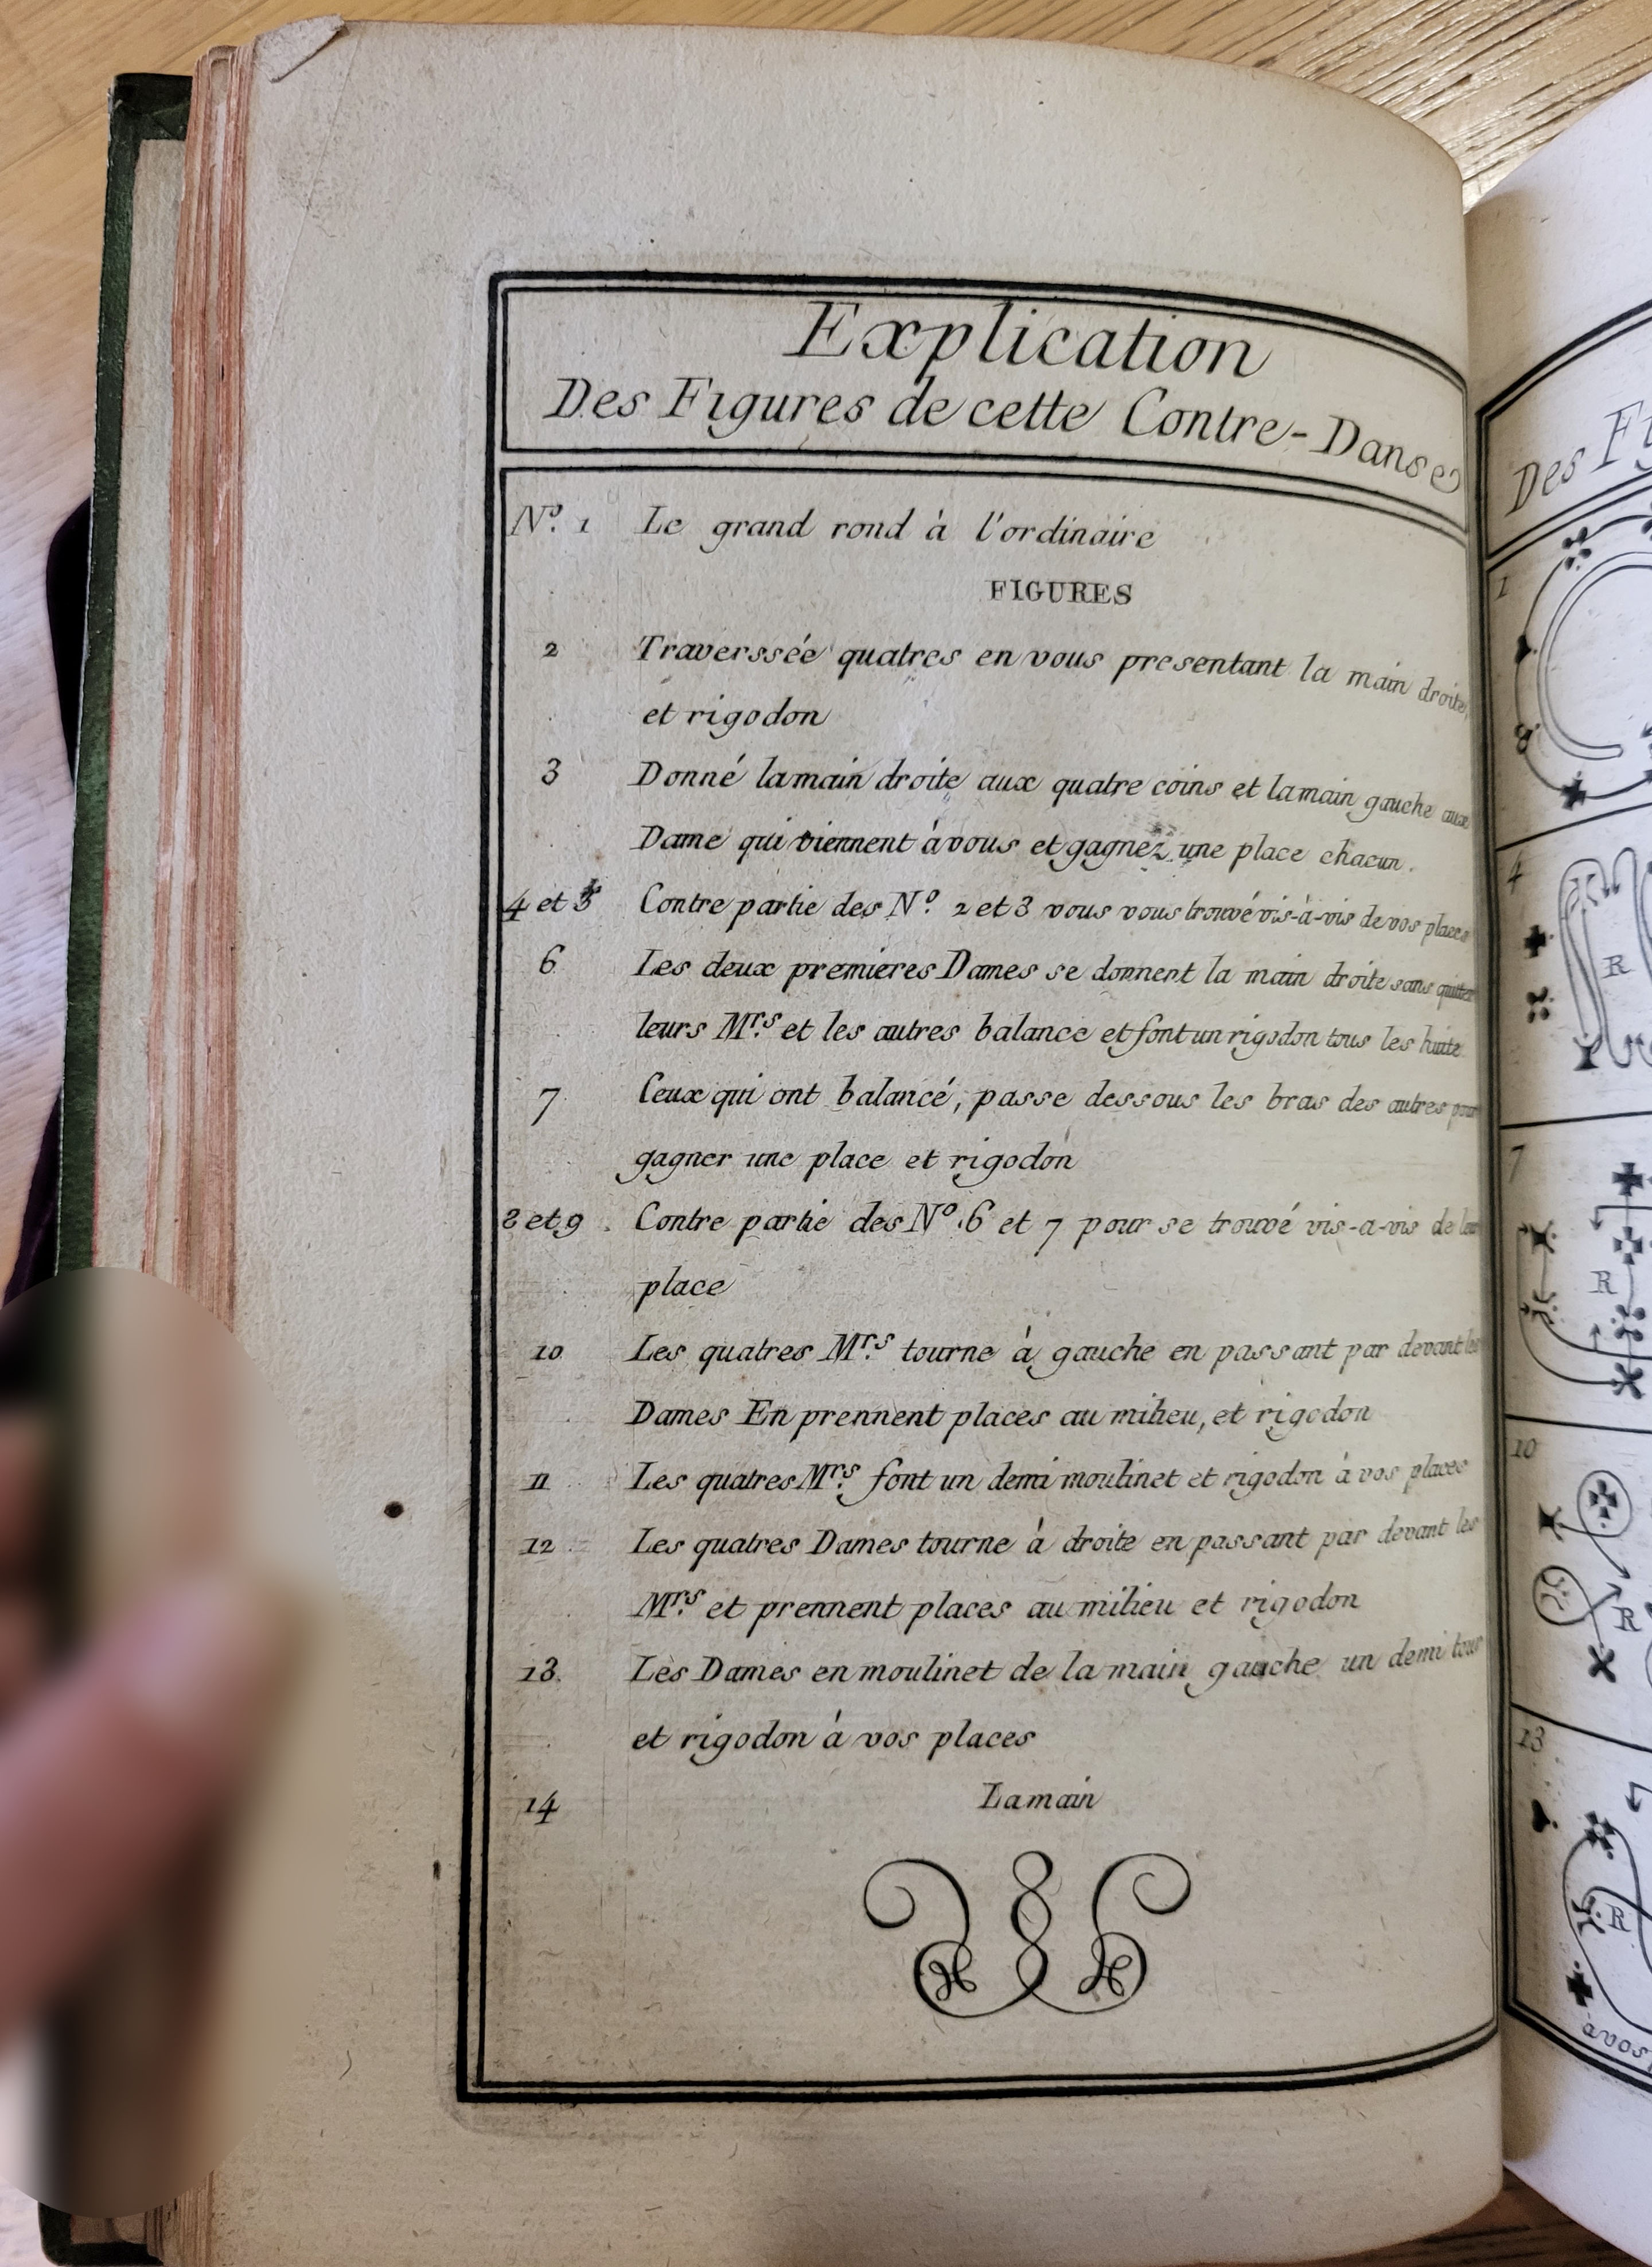 Explication
Des Figures de cette Contre-Danse
Nº. 1 Le grand rond à l'ordinaire
FIGURES
2 Traverssée quatres en vous presentant la main droite,
et rigodon
3 Donné lamain droite aux quatre coins et lamain gauche aux
Dame qui viennent à vous et gagnez une place chacun.
4 et 5 Contre partie des Nº. 2 et 3 vous vous trouvé vis-à-vis de vos places
6 Les deux premieres Dames se donnent la main droite sans quitter
leurs Mrs. et les autres balance et font un rigodon tous les huite
7 Ceux qui ont balancé, passe dessous les bras des autres pour
gagner une place et rigodon
8 et 9. Contre partie des Nº. 6 et 7 pour se trouvé vis-a-vis de leur
place
10 Les quatres Mrs. tourne à gauche en passant par devant les
Dames En prennent places au milieu, et rigodon
11 Les quatres Mrs. font un demi moulinet et rigodon à vos places
12 Les quatres Dames tourne à droite en passant par devant les
Mrs. et prennent places au milieu et rigodon
13. Les Dames en moulinet de la main gauche un demi tour
et rigodon à vos places
14 Lamain
Des
1
8
4
R
7
R
10
R
13
R